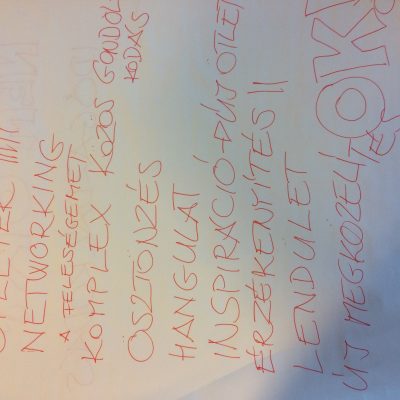 NETWORKING
A FELESÉGEMET
KOMPLEX KÖZÖS GONDOL
KODÁS
ÖSZTÖNZÉS
HANGULAT
INSPIRÁCIÓ → ÚJ ÖTLET
ÉRZÉKENYÍTÉS ||
LENDÜLET
ÚJ MEGKÖZELÍ
TÉS
OK